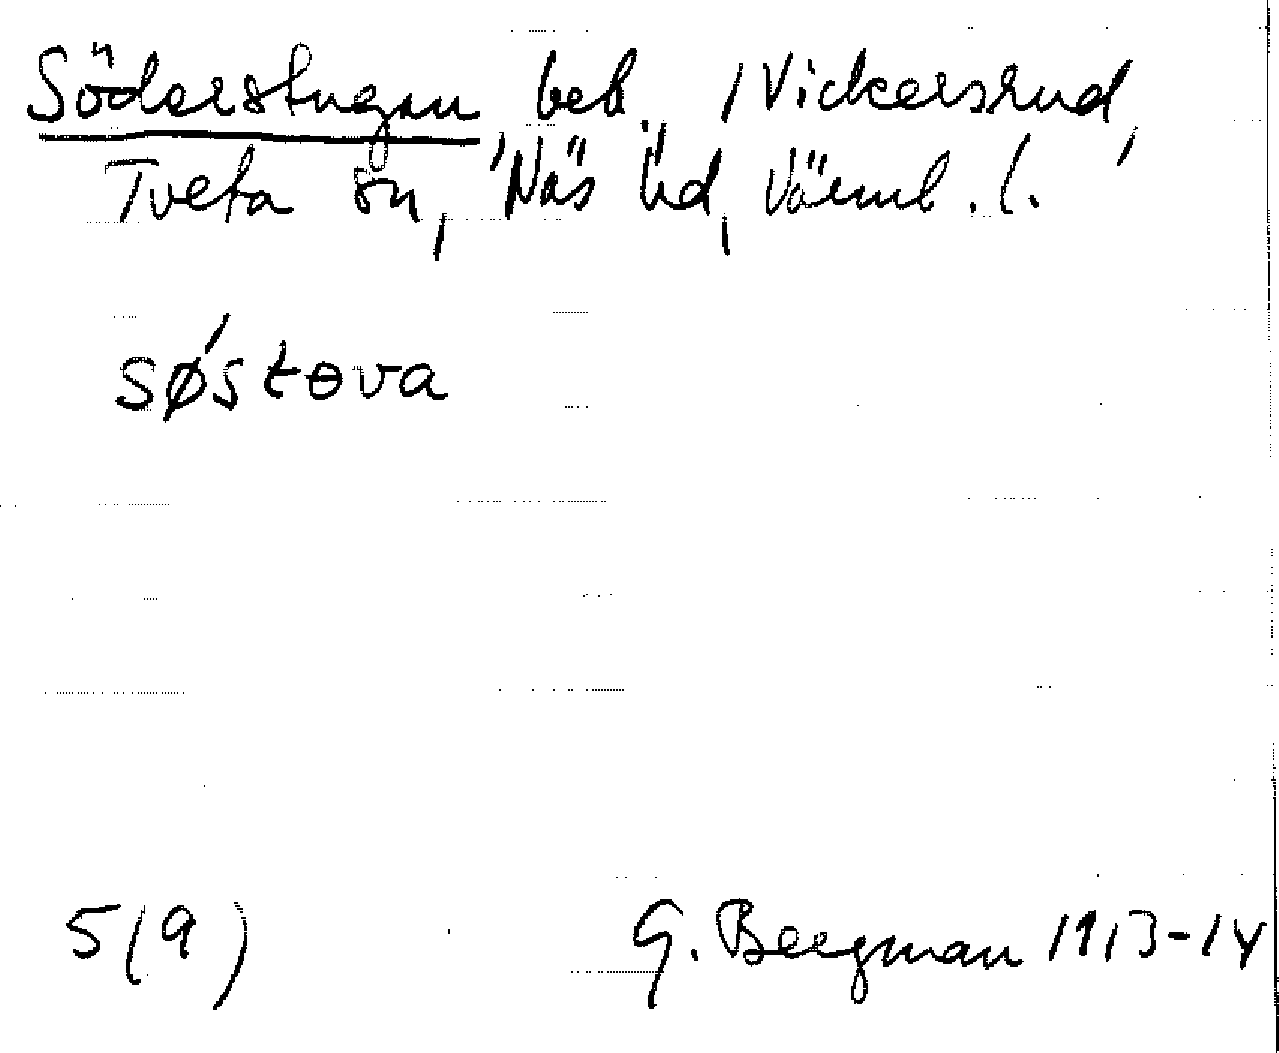 Söderstugan, beb. i Vickersrud,
Tveta sn, Näs hd, Värml. l.
sø´støva
5(9)
G. Bergman 1913-14